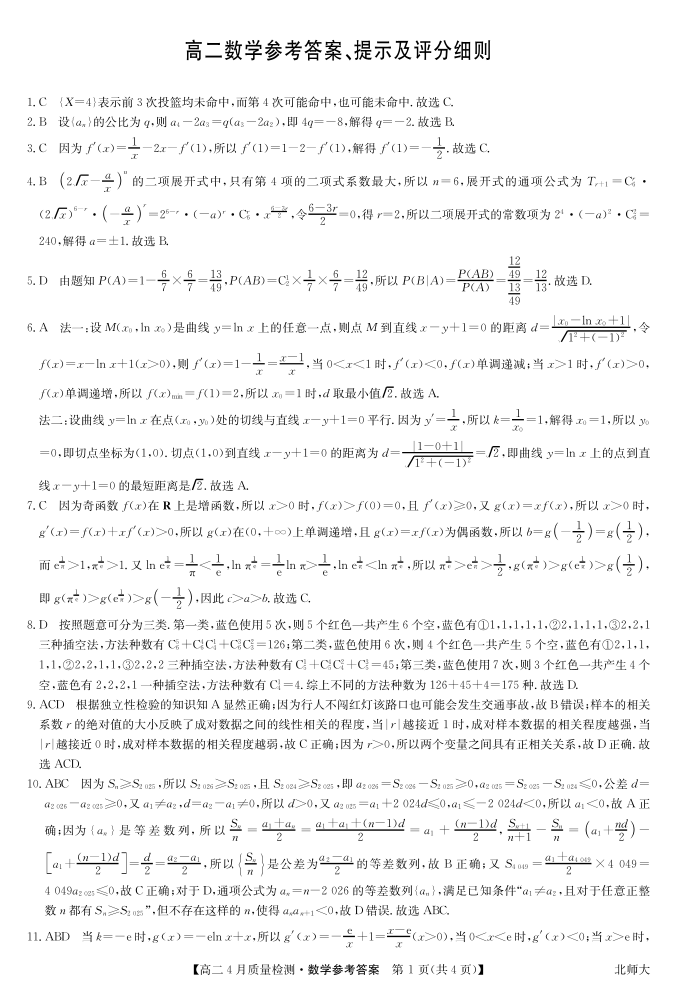 高二数学参考答案、提示及评分细则
1. C {X=4}表示前 3 次投篮均未命中,而第 4 次可能命中,也可能未命中. 故选 C.
2. B 设{aₙ}的公比为 q,则 a₄-2a₃=q(a₃-2a₂),即 4q=-8,解得 q=-2. 故选 B.
3. C 因为 f′(x)=1/x-2x-f′(1),所以 f′(1)=1-2-f′(1),解得 f′(1)=-1/2. 故选 C.
4. B (2√x-a/x)ⁿ 的二项展开式中,只有第 4 项的二项式系数最大,所以 n=6,展开式的通项公式为 T_{r+1}=C₆^r·
(2√x)^{6-r}·(-a/x)^r=2^{6-r}·(-a)^r·C₆^r·x^{(6-3r)/2},令(6-3r)/2=0,得 r=2,所以二项展开式的常数项为 2⁴·(-a)²·C₆²=
240,解得 a=±1. 故选 B.
5. D 由题知 P(A)=1-6/7×6/7=13/49,P(AB)=C₂¹×1/7×6/7=12/49,所以 P(B|A)=P(AB)/P(A)=(12/49)/(13/49)=12/13. 故选 D.
6. A 法一:设 M(x₀,ln x₀)是曲线 y=ln x 上的任意一点,则点 M 到直线 x-y+1=0 的距离 d=|x₀-ln x₀+1|/√(1²+(-1)²),令
f(x)=x-ln x+1(x>0),则 f′(x)=1-1/x=(x-1)/x,当 0<x<1 时,f′(x)<0,f(x)单调递减;当 x>1 时,f′(x)>0,
f(x)单调递增,所以 f(x)min=f(1)=2,所以 x₀=1 时,d 取最小值√2. 故选 A.
法二:设曲线 y=ln x 在点(x₀,y₀)处的切线与直线 x-y+1=0 平行. 因为 y′=1/x,所以 k=1/x₀=1,解得 x₀=1,所以 y₀
=0,即切点坐标为(1,0). 切点(1,0)到直线 x-y+1=0 的距离为 d=|1-0+1|/√(1²+(-1)²)=√2,即曲线 y=ln x 上的点到直
线 x-y+1=0 的最短距离是√2. 故选 A.
7. C 因为奇函数 f(x)在 R 上是增函数,所以 x>0 时,f(x)>f(0)=0,且 f′(x)≥0,又 g(x)=xf(x),所以 x>0 时,
g′(x)=f(x)+xf′(x)>0,所以 g(x)在(0,+∞)上单调递增,且 g(x)=xf(x)为偶函数,所以 b=g(-1/2)=g(1/2),
而 e^{1/π}>1,π^{1/e}>1. 又 ln e^{1/π}=1/π<1/e,ln π^{1/e}=1/e ln π>1/e,ln e^{1/π}<ln π^{1/e},所以 π^{1/e}>e^{1/π}>1/2,g(π^{1/e})>g(e^{1/π})>g(1/2),
即 g(π^{1/e})>g(e^{1/π})>g(-1/2),因此 c>a>b. 故选 C.
8. D 按照题意可分为三类. 第一类,蓝色使用 5 次,则 5 个红色一共产生 6 个空,蓝色有①1,1,1,1,1,②2,1,1,1,③2,2,1
三种插空法,方法种数有 =126;第二类,蓝色使用 6 次,则 4 个红色一共产生 5 个空,蓝色有①2,1,1,
1,1,②2,2,1,1,③2,2,2 三种插空法,方法种数有 =45;第三类,蓝色使用 7 次,则 3 个红色一共产生 4 个
空,蓝色有 2,2,2,1 一种插空法,方法种数有 C₄¹=4. 综上不同的方法种数为 126+45+4=175 种. 故选 D.
9. ACD 根据独立性检验的知识知 A 显然正确;因为行人不闯红灯该路口也可能会发生交通事故,故 B 错误;样本的相关
系数 r 的绝对值的大小反映了成对数据之间的线性相关的程度,当|r|越接近 1 时,成对样本数据的相关程度越强,当
|r|越接近 0 时,成对样本数据的相关程度越弱,故 C 正确;因为 r>0,所以两个变量之间具有正相关关系,故 D 正确. 故
选 ACD.
10. ABC 因为 Sₙ≥S₂₀₂₅,所以 S₂₀₂₆≥S₂₀₂₅,且 S₂₀₂₄≥S₂₀₂₅,即 a₂₀₂₆=S₂₀₂₆-S₂₀₂₅≥0,a₂₀₂₅=S₂₀₂₅-S₂₀₂₄≤0,公差 d=
a₂₀₂₆-a₂₀₂₅≥0,又 a₁≠a₂,d=a₂-a₁≠0,所以 d>0,又 a₂₀₂₅=a₁+2 024d≤0,a₁≤-2 024d<0,所以 a₁<0,故 A 正
确;因为{aₙ}是等差数列,所以 Sₙ/n=(a₁+aₙ)/2=(a₁+a₁+(n-1)d)/2=a₁+(n-1)d/2,S_{n+1}/(n+1)-Sₙ/n=(a₁+nd/2)-
[a₁+(n-1)d/2]=d/2=(a₂-a₁)/2,所以{Sₙ/n}是公差为(a₂-a₁)/2的等差数列,故 B 正确;又 S₄₀₄₉=(a₁+a₄₀₄₉)/2×4 049=
4 049a₂₀₂₅≤0,故 C 正确;对于 D,通项公式为 aₙ=n-2 026 的等差数列{aₙ},满足已知条件“a₁≠a₂,且对于任意正整
数 n 都有 Sₙ≥S₂₀₂₅”,但不存在这样的 n,使得 aₙa_{n+1}<0,故 D 错误. 故选 ABC.
11. ABD 当 k=-e 时,g(x)=-eln x+x,所以 g′(x)=-e/x+1=(x-e)/x(x>0),当 0<x<e 时,g′(x)<0;当 x>e 时,
【高二 4 月质量检测·数学参考答案 第 1 页(共 4 页)】 北师大